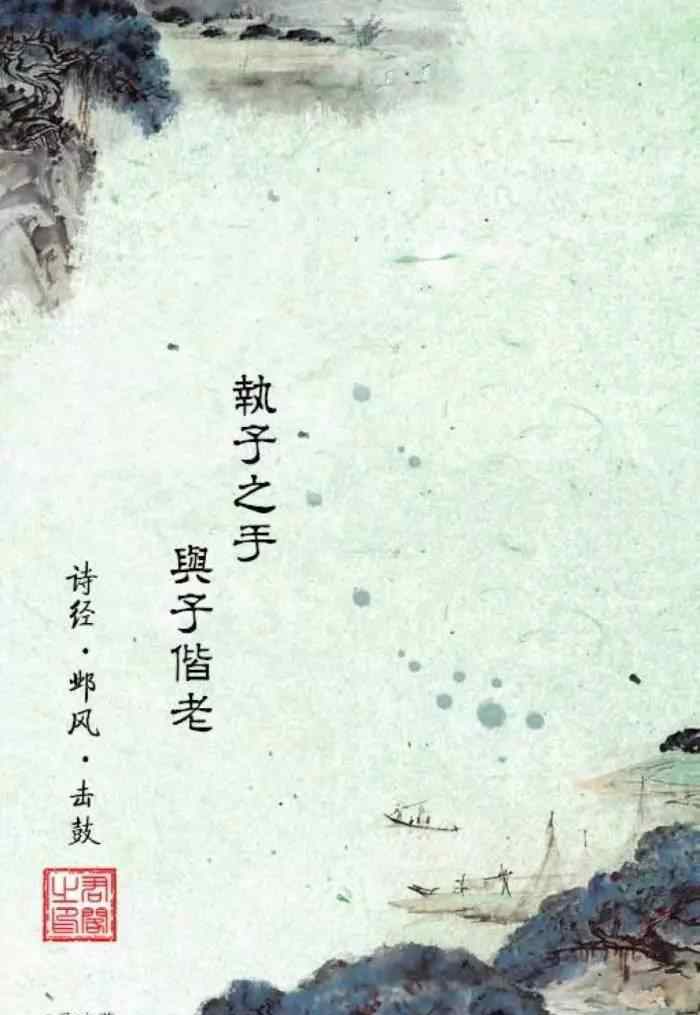 執子之手
與子偕老
诗经·邶风·击鼓